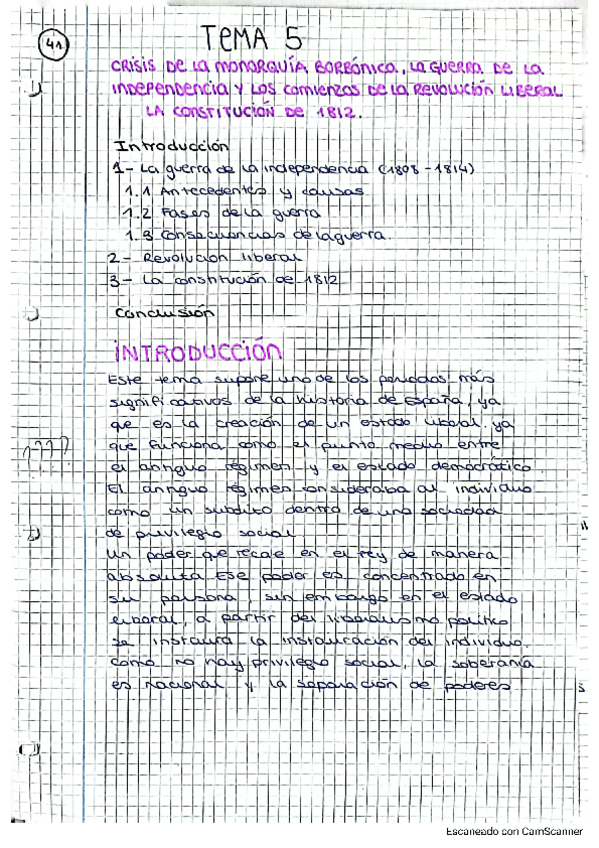 41
TEMA 5
CRISIS DE LA MONARQUÍA BORBÓNICA, LA GUERRA DE LA
INDEPENDENCIA Y LOS COMIENZOS DE LA REVOLUCIÓN LIBERAL
LA CONSTITUCIÓN DE 1812.
Introducción
1- La guerra de la independencia (1808-1814)
1.1 Antecedentes y causas
1.2 Fases de la guerra
1.3 Consecuencias de la guerra.
2- Revolución liberal
3- La constitución de 1812
Conclusión
INTRODUCCIÓN
Este tema supone uno de los periodos más
significativos de la historia de españa, ya
que es la creación de un estado liberal ya
que funciona como el punto medio entre
el antiguo régimen y el estado democrático
El antiguo régimen consideraba al individuo
como un subdito dentro de una sociedad
de privilegio social
un poder que recae en el rey de manera
absoluta Ese poder es concentrado en
su persona, sin embargo en el estado
liberal, a partir del liberalismo politico
se instaura la instauración del individuo.
como no hay privilegio social, la soberanía
es nacional y la separación de poderes
Escaneado con CamScanner